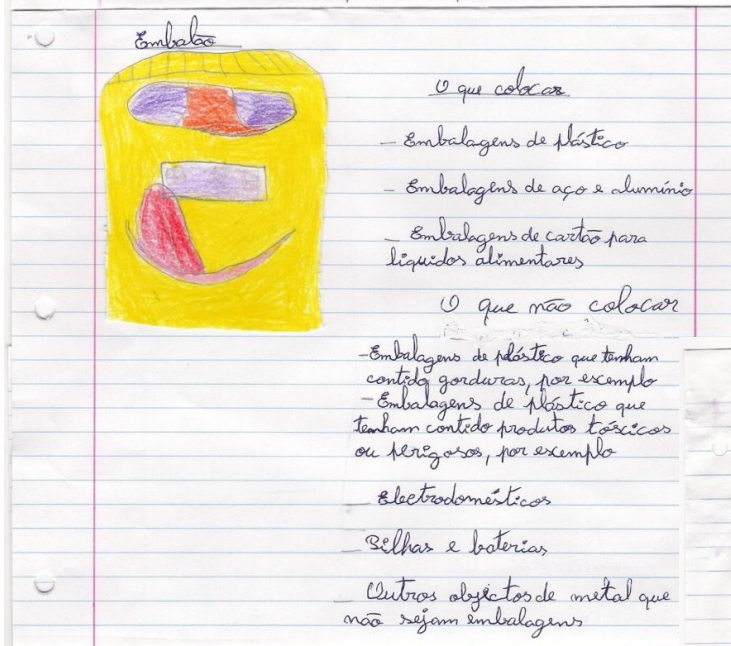 Embalão
O que colocar
- Embalagens de plástico
- Embalagens de aço e alumínio
- Embalagens de cartão para
líquidos alimentares
O que não colocar
- Embalagens de plástico que tenham
contido gorduras, por escemplo
- Embalagens de plástico que
tenham contido produtos tóscicos
ou perigosos, por escemplo
- Electrodomésticos
- Pilhas e baterias
- Outros objectos de metal que
não sejam embalagens